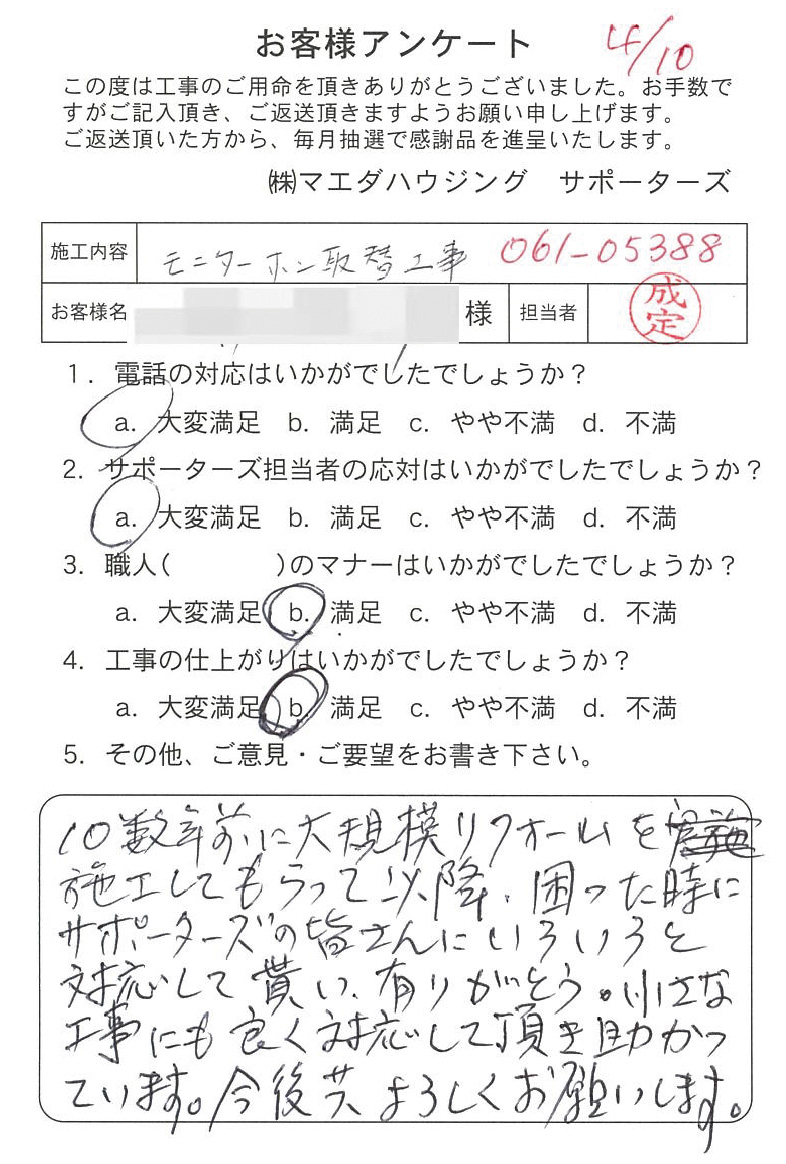 お客様アンケート 4/10
この度は工事のご用命を頂きありがとうございました。お手数で
すがご記入頂き、ご返送頂きますようお願い申し上げます。
ご返送頂いた方から、毎月抽選で感謝品を進呈いたします。
㈱マエダハウジング サポーターズ
施工内容 モニターホン取替工事 061-05388
お客様名 様 担当者 成定
1. 電話の対応はいかがでしたでしょうか？
a. 大変満足 b. 満足 c. やや不満 d. 不満
2. サポーターズ担当者の応対はいかがでしたでしょうか？
a. 大変満足 b. 満足 c. やや不満 d. 不満
3. 職人( )のマナーはいかがでしたでしょうか？
a. 大変満足 b. 満足 c. やや不満 d. 不満
4. 工事の仕上がりはいかがでしたでしょうか？
a. 大変満足 b. 満足 c. やや不満 d. 不満
5. その他、ご意見・ご要望をお書き下さい。
10数年前に大規模リフォームを
施工してもらって以降、困った時に
サポーターズの皆さんにいろいろと
対応して貰い、有りがとう。小さな
工事にも良く対応して頂き助かっ
ています。今後共よろしくお願いします。